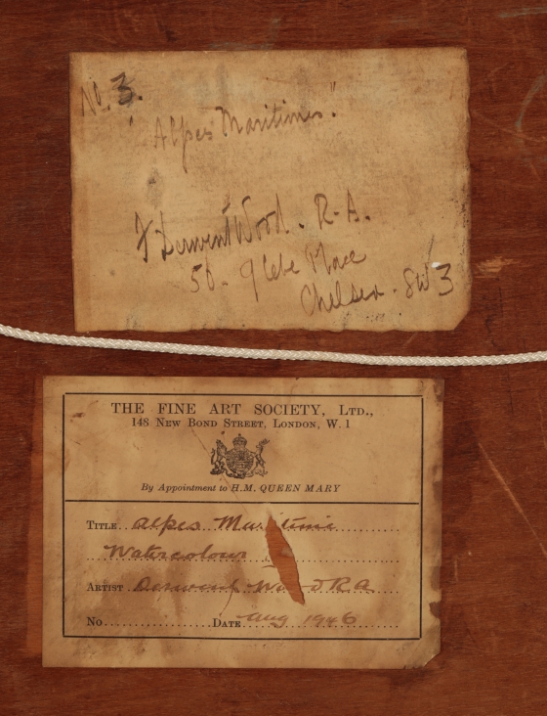 No. 3.
"Alpes Maritimes."
F Derwent Wood. R.A.
50. Glebe Place
Chelsea. SW3
THE FINE ART SOCIETY, LTD.,
148 NEW BOND STREET, LONDON, W.1
By Appointment to H.M. QUEEN MARY
TITLE Alpes Maritime
Watercolour
ARTIST Derwent Wood RA
No. DATE Aug 1946